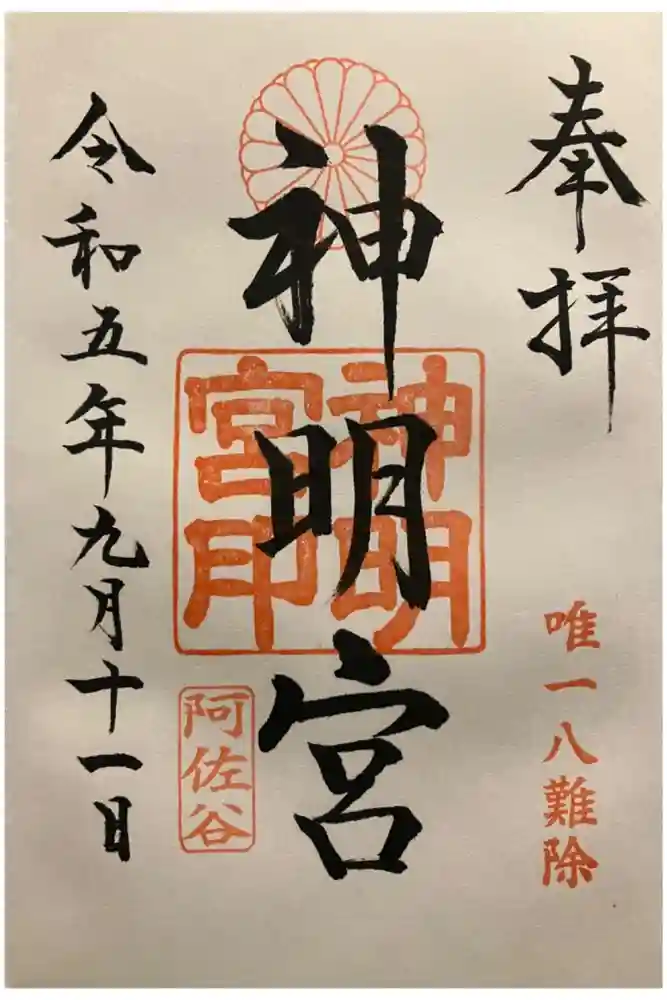 奉拝
唯一八難除
神明宮
神明宮印
阿佐谷
令和五年九月十一日